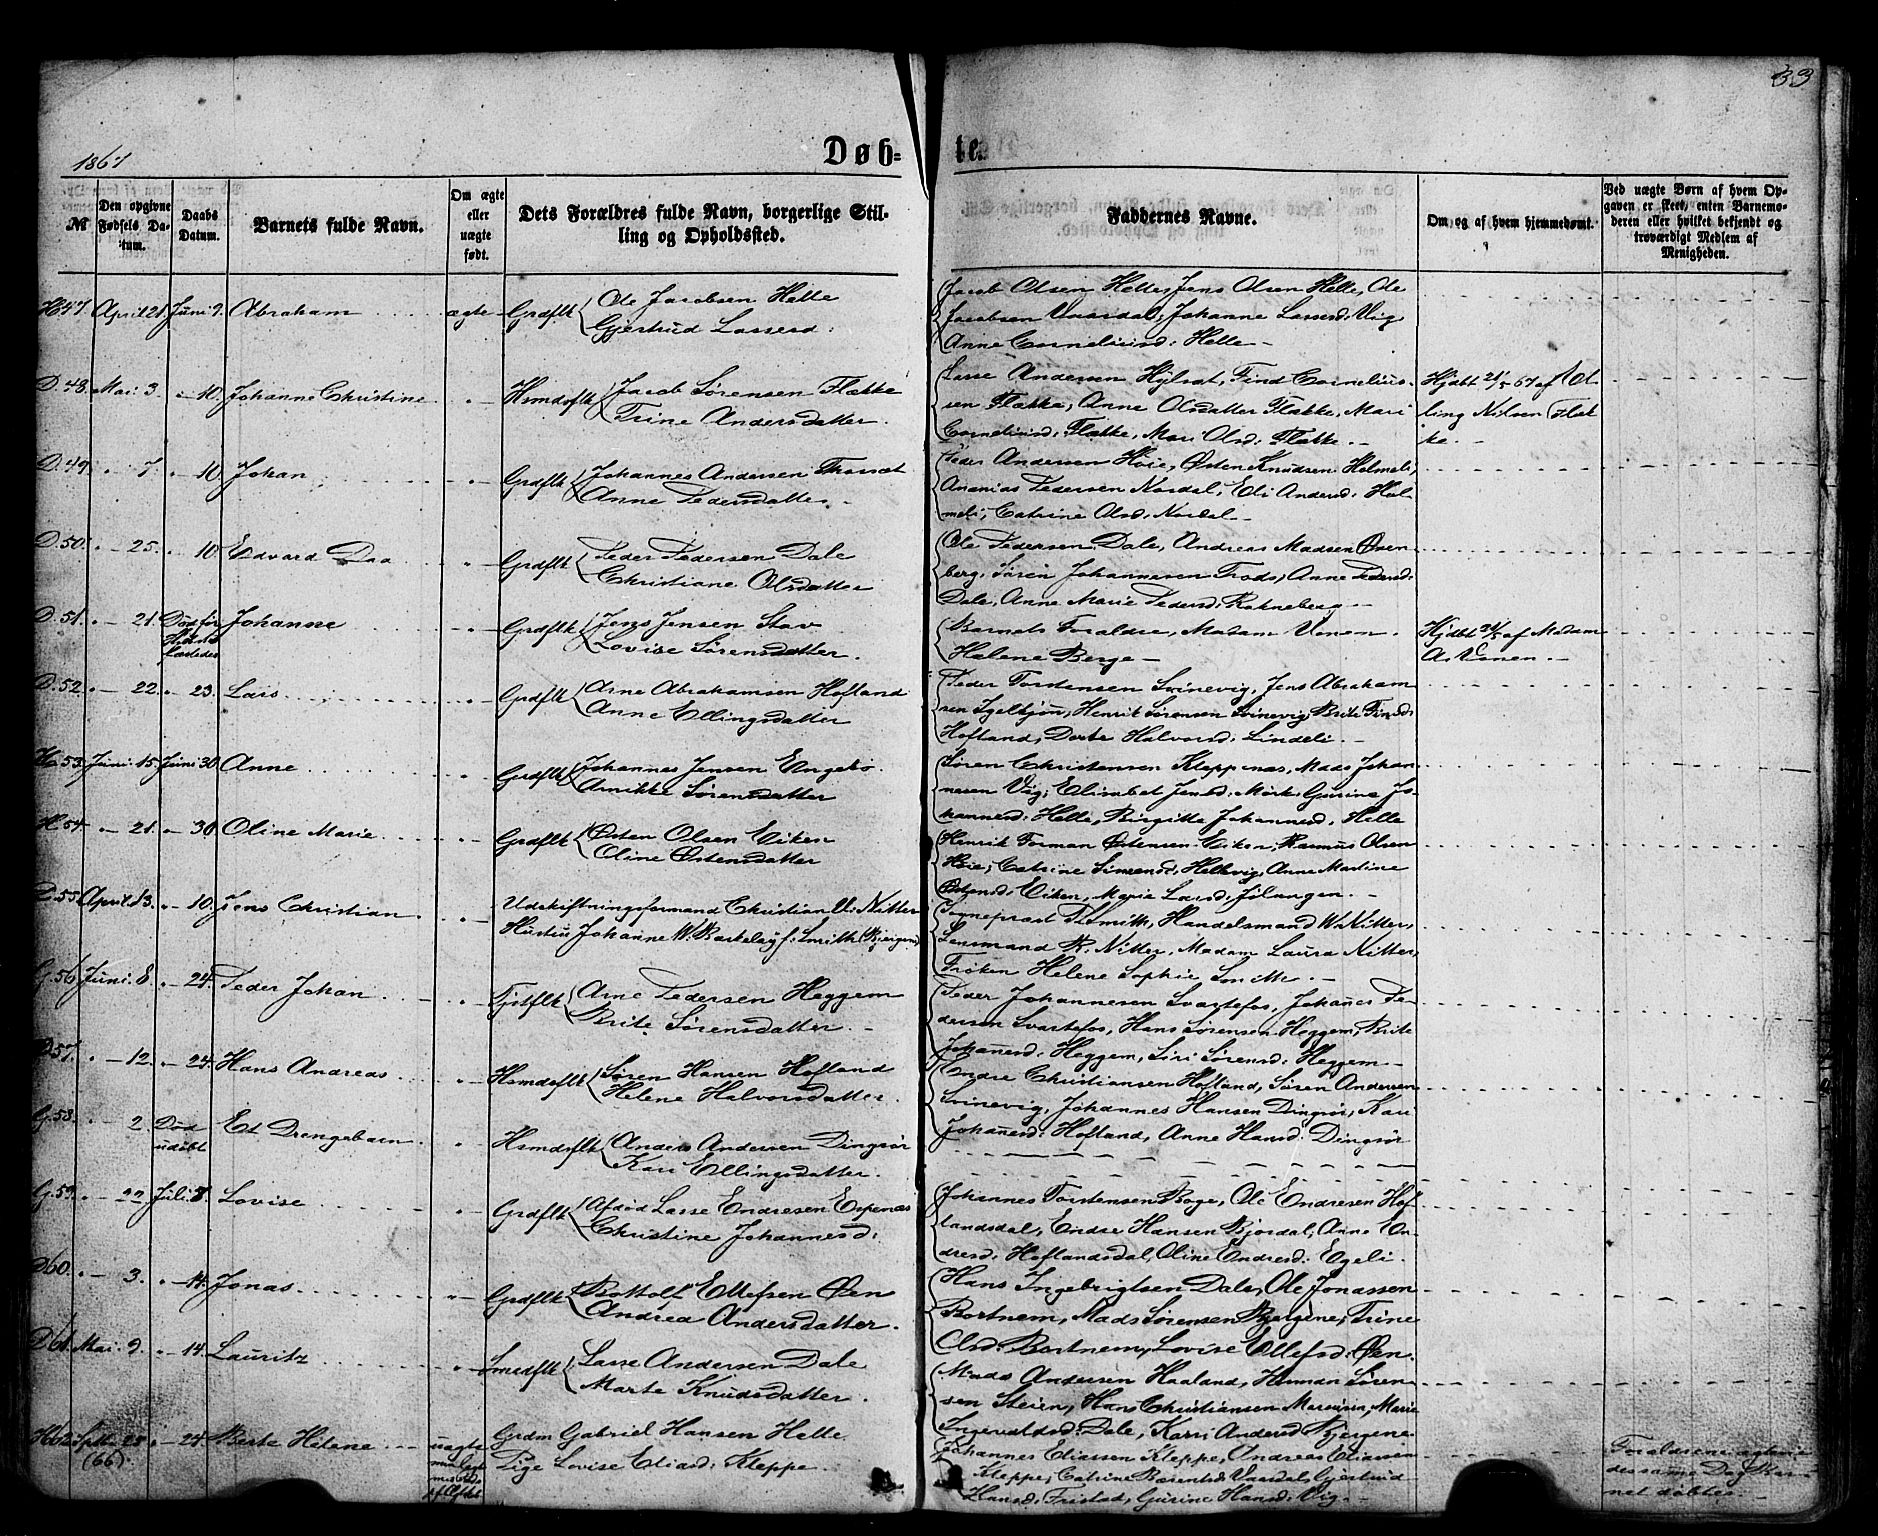 33
1867
Døb=
te.
№
Den opgivne Fødsels Datum.
Daabs Datum.
Barnets fulde Navn.
Om ægte eller uægte født.
Dets Forældres fulde Navn, borgerlige Stilling og Opholdssted.
Faddernes Navne.
Om, og af hvem hjemmedøbt.
Ved uægte Børn af hvem Opgaven er skeet, enten Barnemoderen eller hvilket bekjendt og troværdigt Medlem af Menigheden.
H 47. April 21. Juni 9. Abraham ægte Grdflk Ole Jacobsen Helle
Gjertrud Lassesd:
Jacob Olsen Helle, Jens Olsen Helle, Ole
Jacobsen Vaardal, Johanne Lassesd: Vig
Anne Corneliusd: Helle
D. 48. Mai 3 " 10. Johanne Christine " Hsmdsflk Jacob Sørensen Flække
Trine Andersdatter.
Lasse Andersen Hylsæt, Find Cornelius-
sen Flække, Anne Olsdatter Flække, Mari
Corneliusd: Flække, Mari Olsd: Flække.
Hjdbt 21/5 67 af
ling Nilsen Flæk
ke.
D. 49. " 7. " 10. Johan " Grdflk Johannes Andersen
Anne Pedersdatter
Peder Andersen Høie, Østen Knudsen Holmeli,
Ananias Pedersen Nordal, Eli Andersd: Hol-
meli, Catrine Olsd: Nordal
D. 50. " 25. " 10. Edvard Daa " Grdflk Peder Pedersen Dale
Christiane Olsdatter
Ole Pedersen Dale, Andreas Madsen Øren
berg, Søren Johannesen Trods, Anne Pedersd:
Dale, Anne Marie Pedersd: Rakneberg
D. 51. " 21. Død før Johanne " Grdflk Jens Jensen Stav
Lovise Sørensdatter.
Barnets Forældre, Madam Vonen
Helene Berge
Hjdbt 21/5 af Madam
A. Vonen.
D. 52. " 22. " 23. Lars " Grdflk Arne Abrahamsen Hofland
Anne Ellingsdatter
Peder Torstensen Svinevig, Jens Abraham
sen Igelkjøn, Henrik Sørensen Svinevig, Brite Finsd:
Hofland, Dorte Halvorsd: Lindeli.
H 53. Juni 15. Juni 30. Anne " Grdflk Johannes Jensen Engebø
Annikke Sørensdatter
Søren Christensen Kleppenes, Mads Johan-
nesen Vig, Elisabet Jensd: Mørk, Gurine Jo-
hannesd: Helle, Birgitte Johannesd: Helle
H 54. " 21. " 30. Oline Marie " Grdflk Østen Olsen Eiken
Oline Østensdatter
Henrik Forman Østensen Eiken, Rasmus Olsen
Høie, Catrine Simensd: Hellevig, Anne Martine
Østensd: Eiken, Marie Larsd:
D. 55. April 13. " 10. Jens Christian " Udskiftningsformand Christian U. Nitter
Hustru Johanne W. Barkeley f. Smith (Bjergene)
Sogneprest Smith, Handelsmand W. Nitter,
Lensmand R. Nitter, Madam Laura Nitter,
Frøken Helene Sophie Smith.
G. 56. Juni 8 " 24. Peder Johan " Tjstflk Arne Pedersen Heggem
Brite Sørensdatter.
Peder Johannesen Svartefos, Johanes Pe-
dersen Svartefos, Hans Sørensen Heggem, Brite
Johanesd: Heggem, Siri Sørensd: Heggem
D 57. " 12. " 24. Hans Andreas " Hsmdsflk Søren Hansen Hofland
Helene Halvorsdatter.
Endre Christiansen Hofland, Søren Andersen
Svinevig, Johannes Hansen Dingsør, Kari
Johanesd: Hofland, Anne Hansd: Dingsør
G. 58. " 2. Død udøbt Et Drengebarn " Hsmdsflk Anders Andersen Dingsør
Kari Ellingsdatter.
G. 59. " 22 Juli 7. Lovise " Grdflk Afdød Lasse Endresen Espenes
Christine Johannesd:
Johannes Torstensen Boge, Ole Endresen Hof
landsdal, Endre Hansen Bjordal, Anne En
dresd: Hoflandsdal, Oline Endresd: Egeli.
D 60. " 3. " 14. Jonas " Grdflk Bottolf Ellefsen Øen
Andrea Andersdatter.
Hans Ingebrigtsen Dale, Ole Jonassen
Bortnem, Mads Sørensen Bjergene, Trine
Olsd: Bortnem, Lovise Ellefsd: Øen.
D 61. Mai 9. " 14. Lauritz " Smedflk Lasse Andersen Dale
Marte Knudsdatter.
Mads Andersen Haaland, Herman Søren-
sen Steien, Hans Christiansen Marcusen, Marie
Ingevaldsd: Dale, Karri Andersd: Bjergene
H 62. Septbr 28 " 24. Berte Helene uægte Grdm Gabriel Hansen Helle
(66). Pige Lovise Eliasd: Kleppe
Johannes Eliassen Kleppe, Andreas Eliassen
Kleppe, Catrine Berentsd: Vaardal, Gjertrud
Hansd: Fristad, Gurine Hansd: Vig.
Forældrene
samme Dag Bar-
net døbtes.